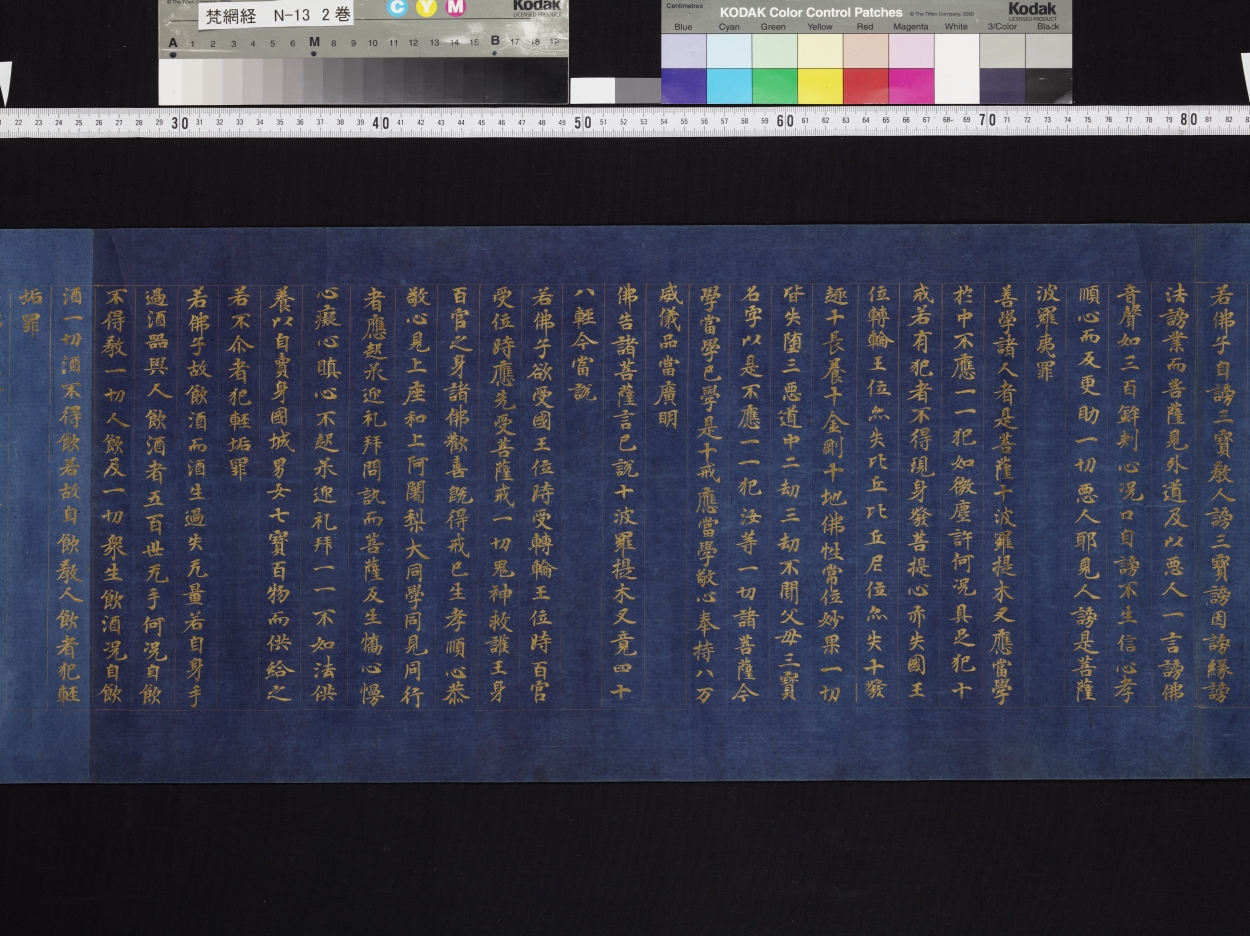 梵網経 N-13 2巻
C Y M
Kodak
LICENSED PRODUCT
A 1 2 3 4 5 6 M 8 9 10 11 12 13 14 15 B 17 18 19
Centimetres
KODAK Color Control Patches
© The Tiffen Company, 2000
Kodak
LICENSED PRODUCT
Blue Cyan Green Yellow Red Magenta White 3/Color Black
22 23 24 25 26 27 28 29 30 31 32 33 34 35 36 37 38 39 40 41 42 43 44 45 46 47 48 49 50 51 52 53 54 55 56 57 58 59 60 61 62 63 64 65 66 67 68 69 70 71 72 73 74 75 76 77 78 79 80 81 82
若佛子自謗三寶教人謗三寶謗因謗縁謗
法謗業而菩薩見外道及以悪人一言謗佛
音聲如三百鉾刺心况口自謗不生信心孝
順心而反更助一切悪人耶見人謗是菩薩
波羅夷罪
善學諸人者是菩薩十波羅提木叉應當學
於中不應一一犯如微塵許何况具足犯十
戒若有犯者不得現身發菩提心亦失國王
位轉輪王位亦失比丘比丘尼位亦失十發
趣十長養十金剛十地佛性常位妙果一切
皆失堕三悪道中二劫三劫不聞父母三寶
名字以是不應一一犯汝等一切諸菩薩今
學當學已學是十戒應當學敬心奉持八万
威儀品當廣明
佛告諸菩薩言已說十波羅提木叉竟四十
八輕今當說
若佛子欲受國王位時受轉輪王位時百官
受位時應先受菩薩戒一切鬼神救護王身
百官之身諸佛歡喜既得戒已生孝順心恭
敬心見上座和上阿闍梨大同學同見同行
者應起承迎礼拜問訊而菩薩反生憍心慢
心癡心瞋心不起承迎礼拜一一不如法供
養以自賣身國城男女七寶百物而供給之
若不尒者犯輕垢罪
若佛子故飲酒而酒生過失无量若自身手
過酒器與人飲酒者五百世无手何况自飲
不得教一切人飲及一切衆生飲酒况自飲
酒一切酒不得飲若故自飲教人飲者犯輕
垢罪